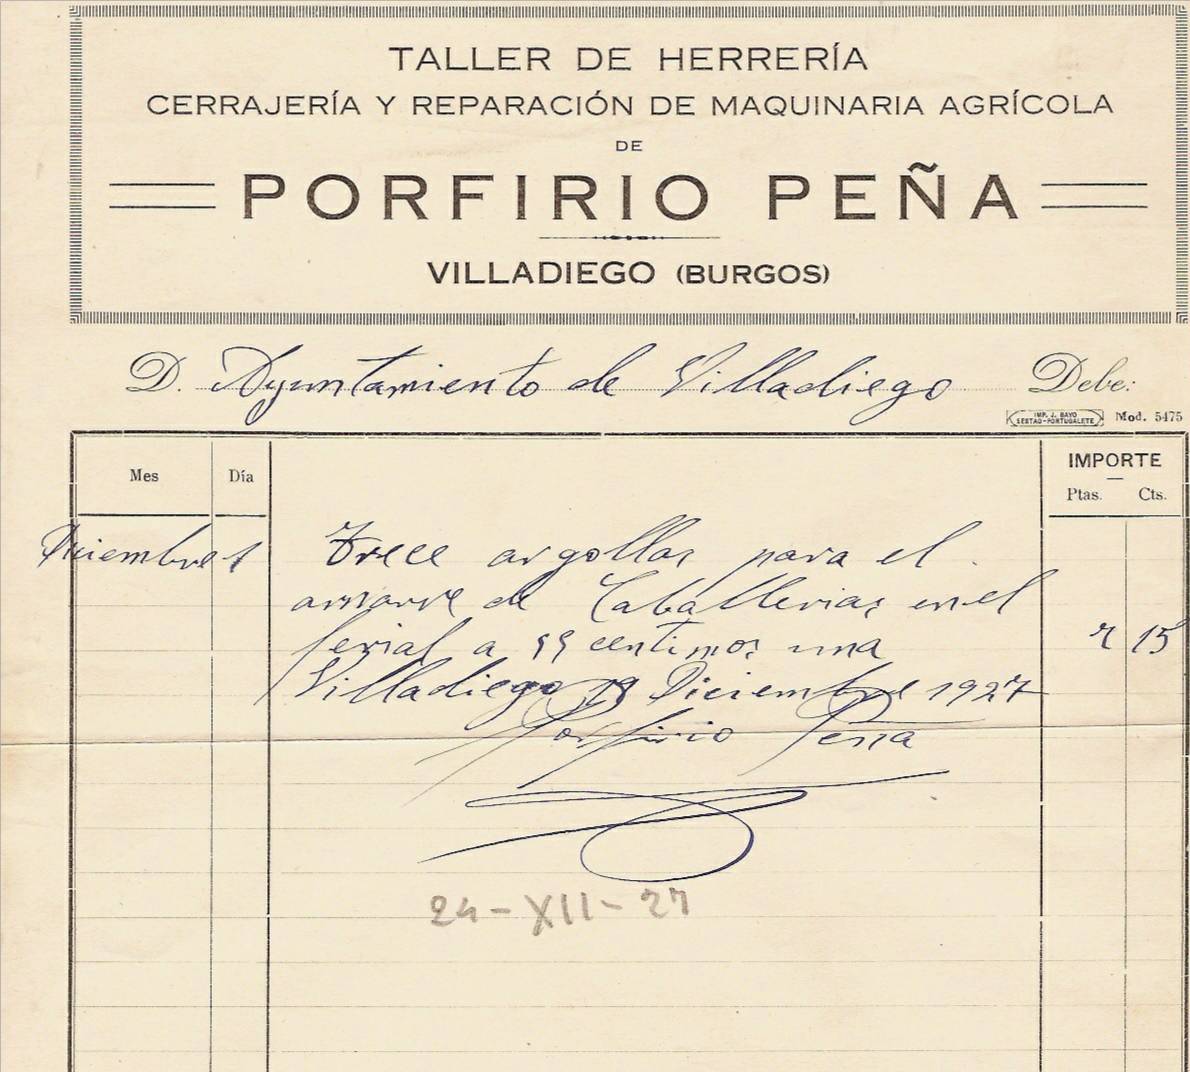 TALLER DE HERRERÍA
CERRAJERÍA Y REPARACIÓN DE MAQUINARIA AGRÍCOLA
DE
PORFIRIO PEÑA
VILLADIEGO (BURGOS)
D. Ayuntamiento de Villadiego Debe:
IMP. J. BAYO
SESTAO-PORTUGALETE Mod. 5475
Mes Día IMPORTE
Ptas. Cts.
Diciembre 1 Trece argollas para el
amarre de Caballerias en el
ferial a 55 centimos una 7 15
Villadiego 19 Diciembre 1927
Porfirio Peña
24-XII-27